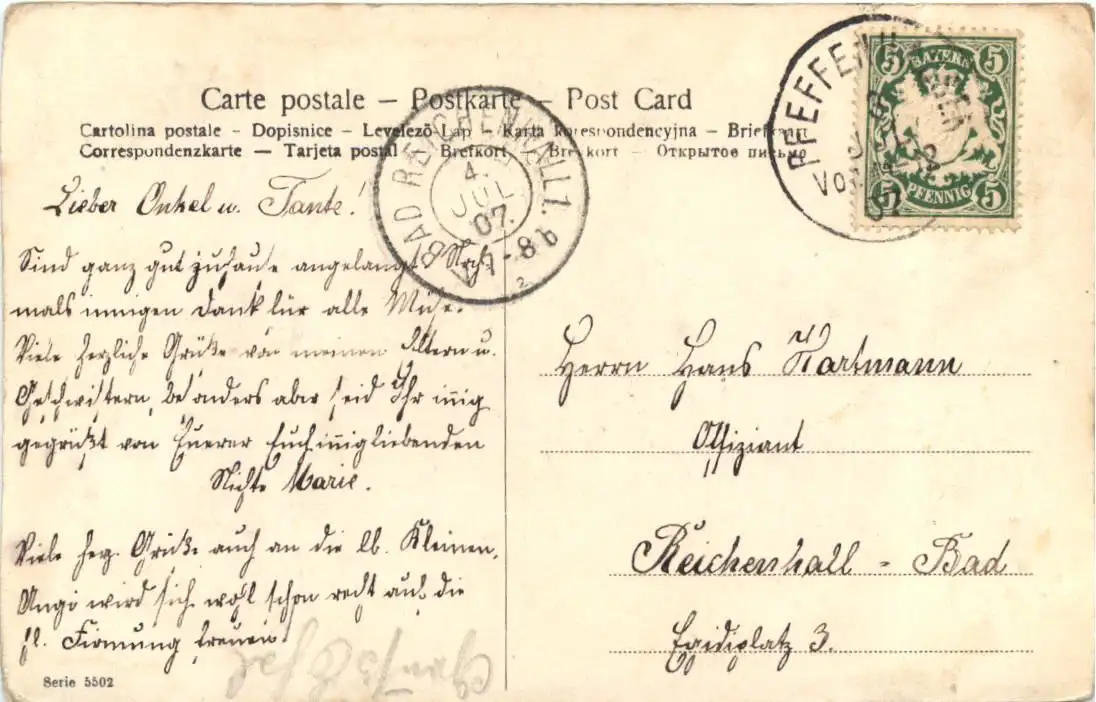 Carte postale – Postkarte – Post Card
Cartolina postale – Dopisnice – Levelező-Lap – Karta korespondencyjna – Briefkaart
Correspondenzkarte – Tarjeta postal – Brefkort – Brevkort – Открытое письмо
BAD REICHENHALL 1.
4. JUL 07.
V. 7-8 b
PFEFFENH
VOR
07
BAYERN
5 5
5 5
PFENNIG
Lieber Onkel u. Tante!
Sind ganz gut zuhause angelangt. Noch
mals innigen Dank für alle Mühe.
Viele herzliche Grüße von meinen Altern u.
Geschwistern, besonders aber seid Ihr innig
gegrüßt von Euerer Euch innigliebenden
Nichte Marie.
Viele herz. Grüße auch an die lb. Kleinen,
wird sich wohl schon recht auf die
hl. Firmung freuen.
Herrn Hans Hartmann
Offiziant
Reichenhall - Bad
Egidiplatz 3.
Serie 5502